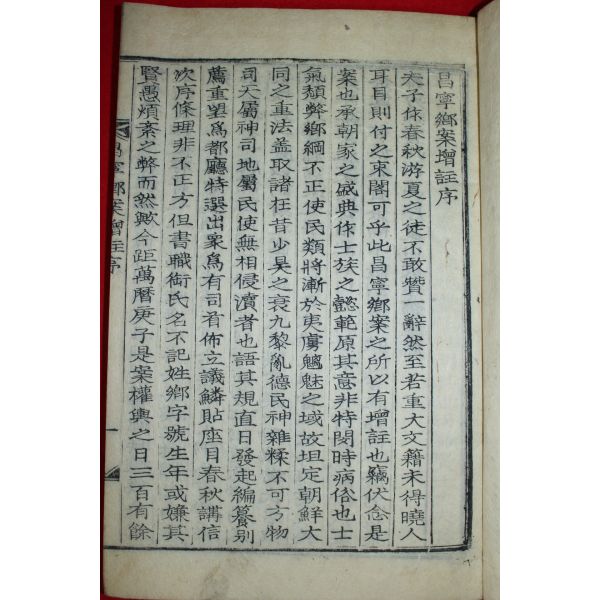 昌寧鄕案增註序
夫子作春秋游夏之徒不敢贊一辭然至若重大文籍未得曉人
耳目則付之束閣可乎此昌寧鄕案之所以有增註也竊伏念是
案也承朝家之盛典作士族之懿範原其意非特閔時病俗也士
氣頹弊鄕綱不正使民類將漸於夷虜魑魅之域故坦定朝鮮大
同之重法盖取諸在昔少昊之衰九黎亂德民神雜糅不可方物
司天屬神司地屬民使無相侵瀆者也語其規直日發起編纂別
薦重望爲都廳特選出衆爲有司肴佈立議鱗貼座目春秋講信
次序條理非不正方但書職銜氏名不記姓鄕字號生年或嫌其
賢愚煩紊之弊而然歟今距萬曆庚子是案權輿之日三百有餘
昌寧鄕案增註序
一